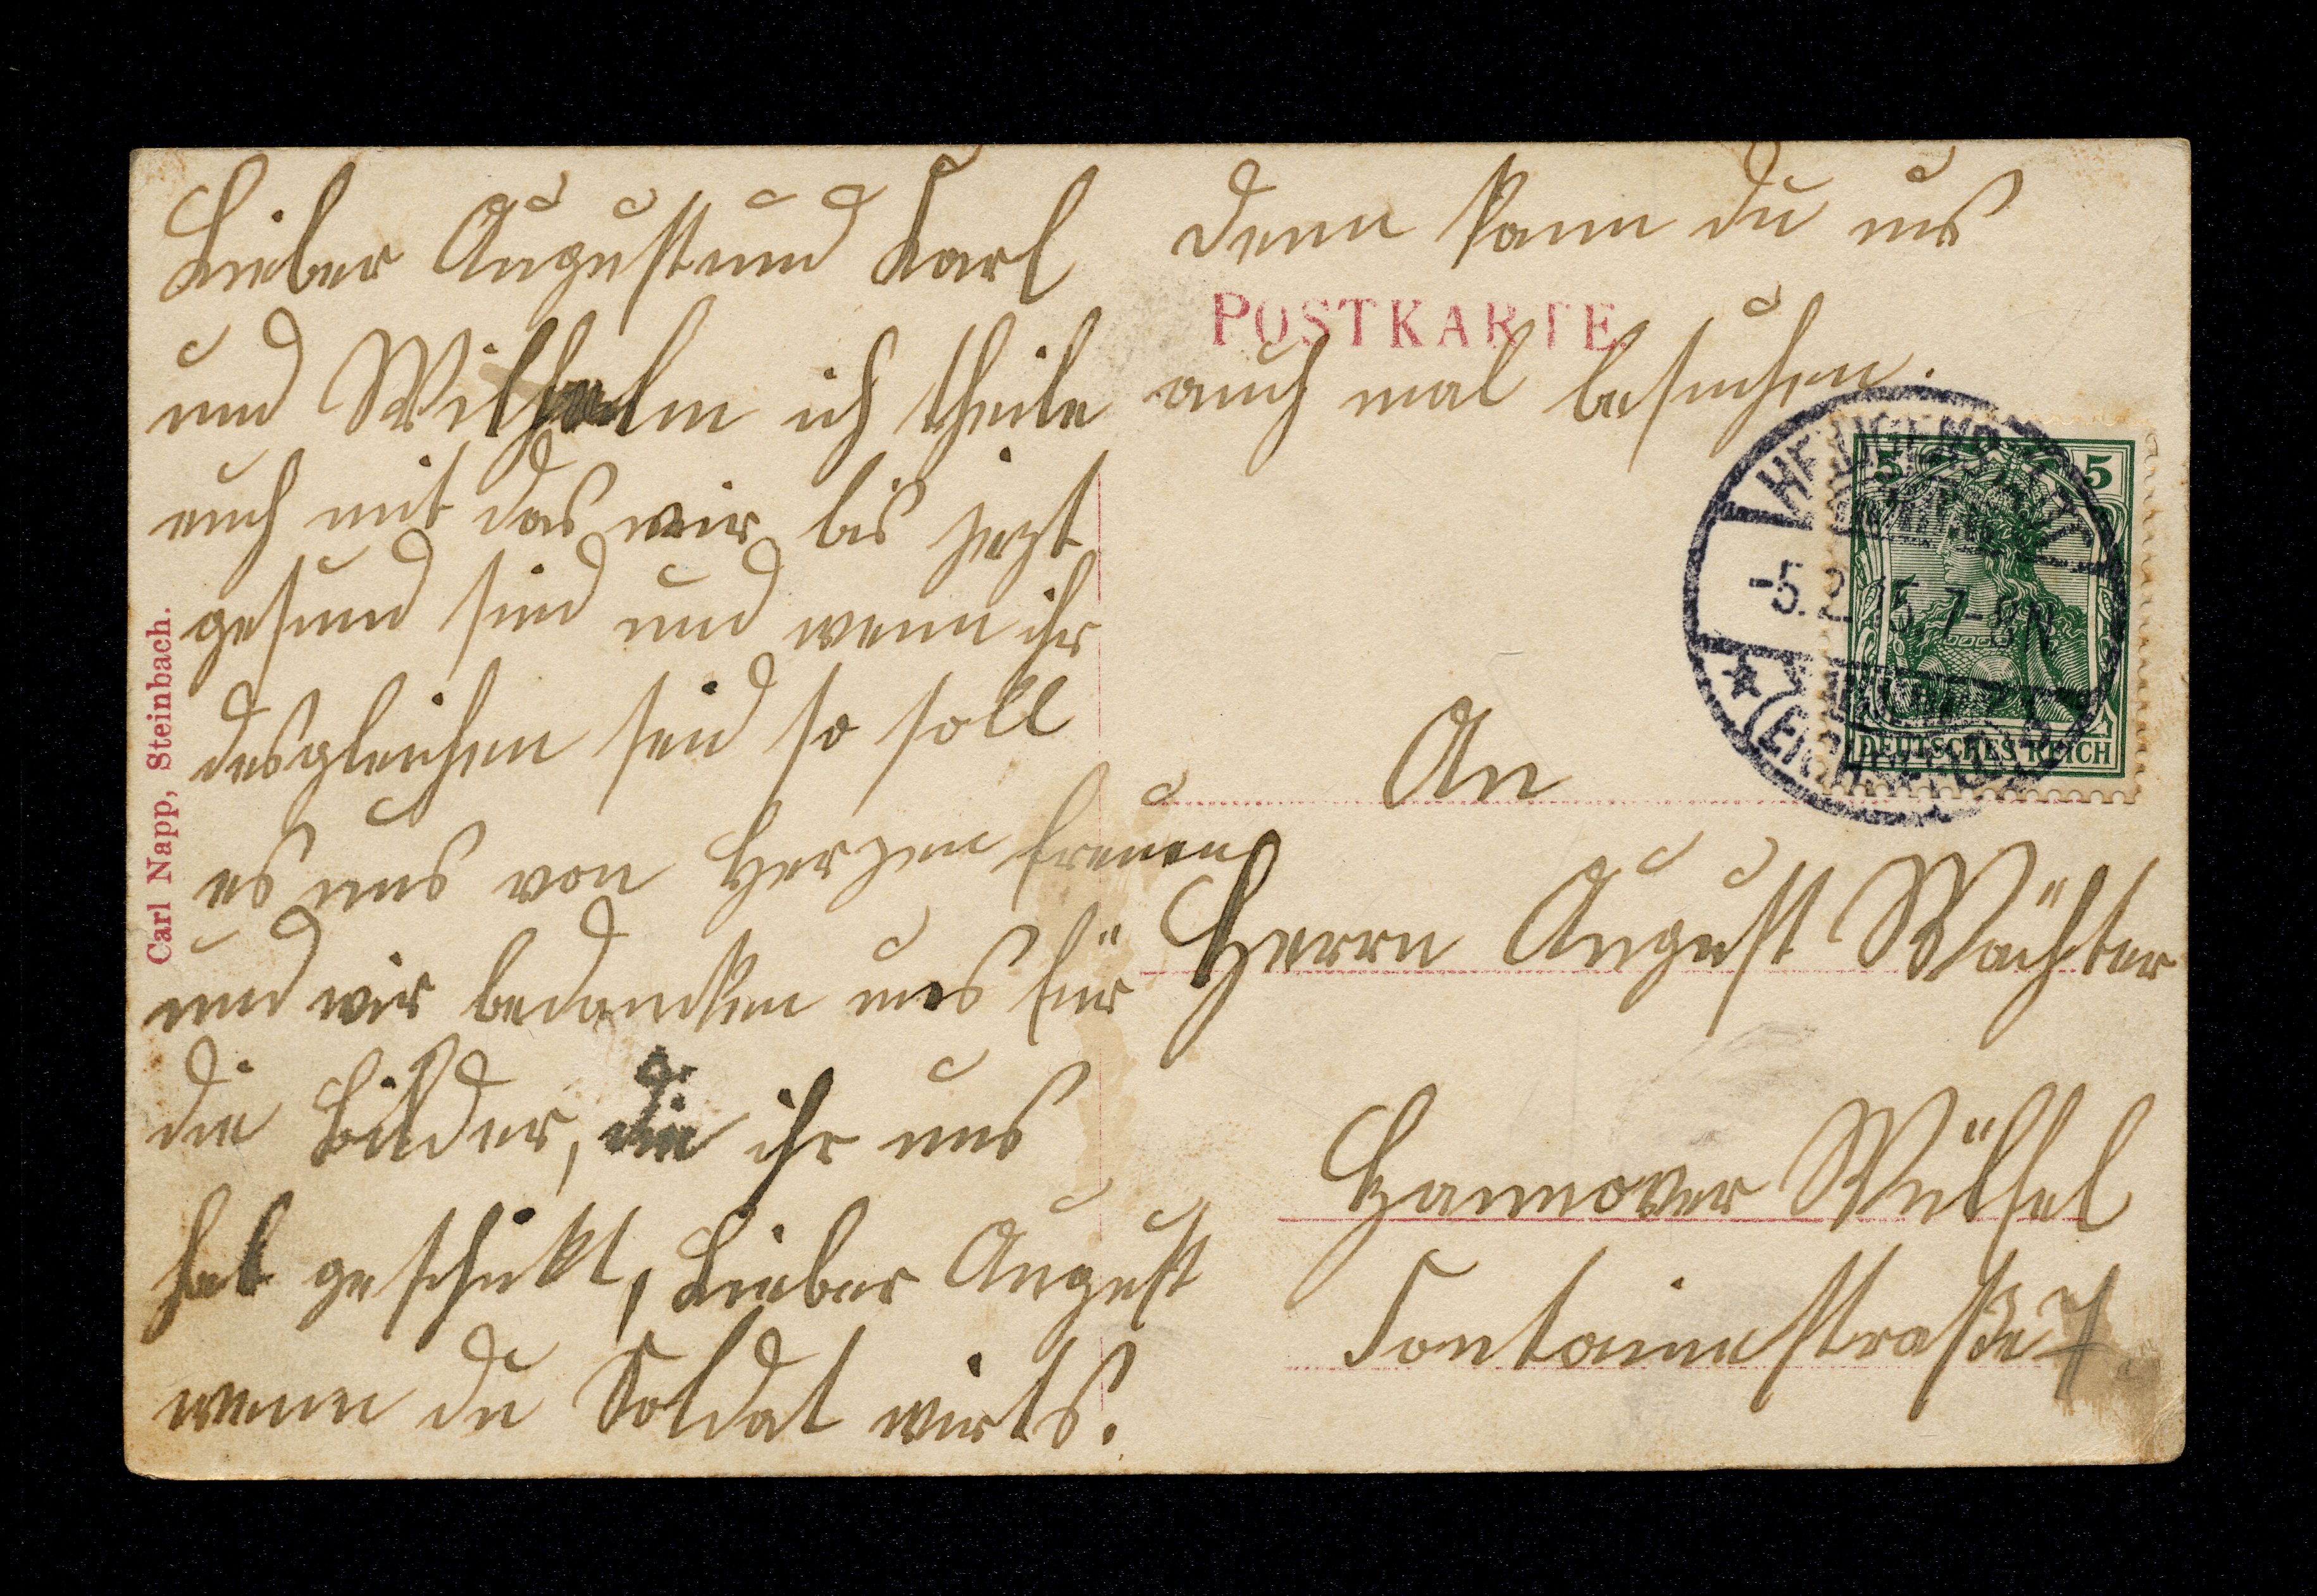 Lieber August und Karl
und Wilhelm ich theile
euch mit das wir bis jezt
gesund sind und wenn ihr
desgleichen seid so soll
es uns von Herzen freuen
und wir bedancken uns für
die Bilder, die ihr uns
hat geschickt, Lieber August
wenn du Soldat wirts.
denn kann du uns
auch mal besuchen.
POSTKARTE.
HEILIGENSTADT
-5.2.15.7-8N
★ (EICHSFELD)
5 5
DEUTSCHES REICH
An
Herrn August Wächter
Hannover Wülfel
Fontainestraße 7.
Carl Napp, Steinbach.